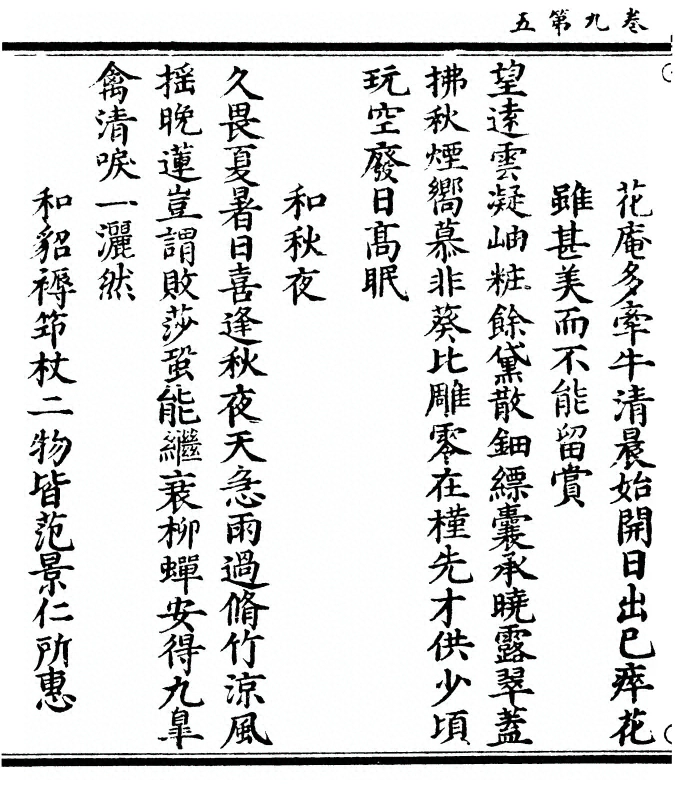 卷九第五
花庵多牽牛清晨始開日出已瘁花
雖甚美而不能留賞
望遠雲凝岫粧餘黛散鈿縹囊承曉露翠蓋
拂秋煙嚮慕非葵比雕零在槿先才供少頃
玩空廢日髙眠
和秋夜
久畏夏暑日喜逢秋夜天急雨過脩竹涼風
揺晚蓮豈謂敗莎蛩能繼衰柳蟬安得九臯
禽清唳一灑然
和貂褥筇杖二物皆范景仁所惠